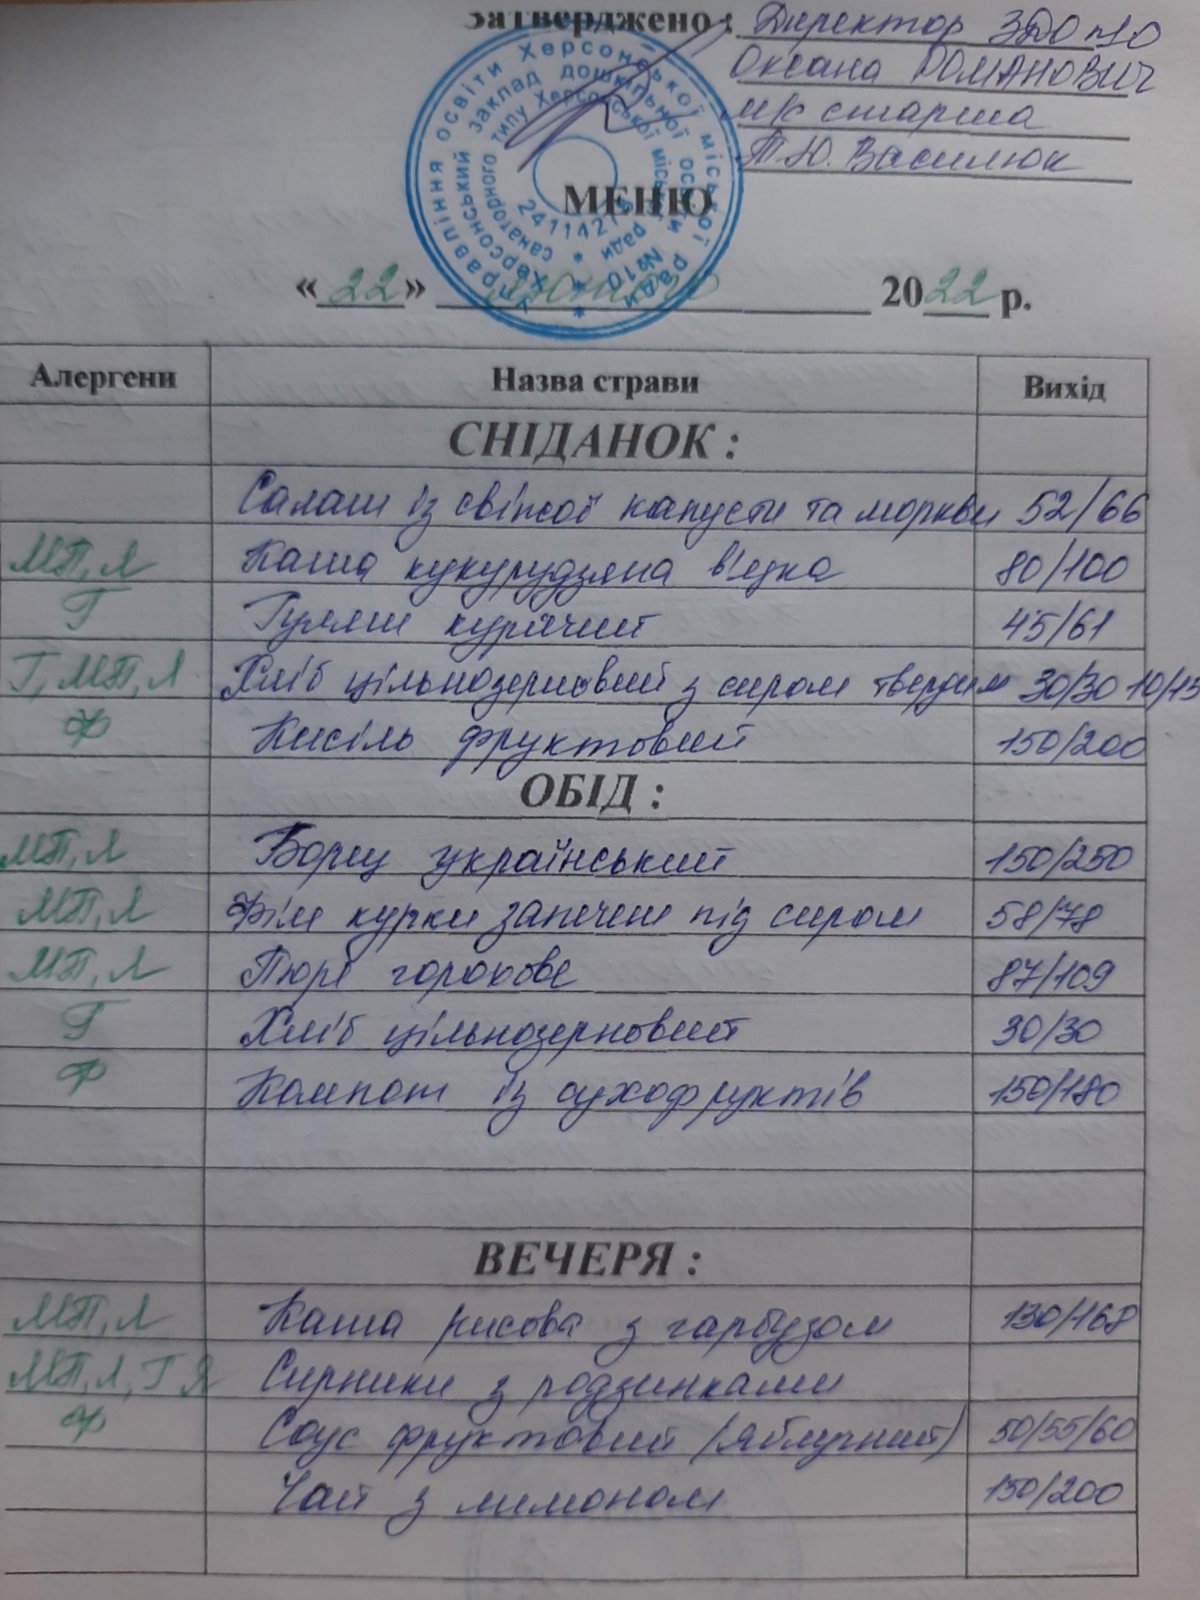 Затверджено : Директор ЗДО №10
Оксана РОМАНОВИЧ
м/с старша
Т.Ю. Василюк
Управління освіти Херсонської міської ради
Херсонський заклад дошкільної освіти №10
санаторного типу Херсонської міської ради
МЕНЮ
« 22 » 2022 р.
Алергени Назва страви Вихід
СНІДАНОК :
Салат із свіжої капусти та моркви 52/66
МП, Л Каша кукурудзяна в'язка 80/100
Г Гуляш курячий 45/61
Г, МП, Л Хліб цільнозерновий з сиром твердим 30/30 10/15
Ф Кисіль фруктовий 150/200
ОБІД :
МП, Л Борщ український 150/250
МП, Л Філе курки запечене під сиром 58/78
МП, Л Пюре горохове 87/109
Г Хліб цільнозерновий 30/30
Ф Компот із сухофруктів 150/180
ВЕЧЕРЯ :
МП, Л Каша рисова з гарбузом 130/168
МП, Л, Г Я Сирники з родзинками
Ф Соус фруктовий (яблучний) 50/55/60
Чай з лимоном 150/200